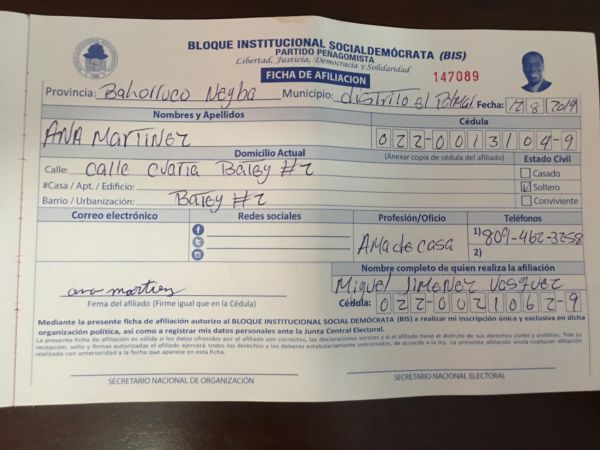 BLOQUE INSTITUCIONAL SOCIALDEMÓCRATA (BIS)
PARTIDO PEÑAGOMISTA
Libertad, Justicia, Democracia y Solidaridad
FICHA DE AFILIACIÓN
147089
Provincia: Bahorruco Neyba Municipio: Distrito El Palmar Fecha: 12/8/2019
Nombres y Apellidos Cédula
ANA MARTINEZ 022-0013104-9
Domicilio Actual (Anexar copia de cédula del afiliado) Estado Civil
Calle: calle cuarta Batey #2 Casado
#Casa / Apt. / Edificio: Soltero
Barrio / Urbanización: Batey #2 Conviviente
Correo electrónico Redes sociales Profesión/Oficio Teléfonos
Ama de casa 1) 809-462-3258
2)
Nombre completo de quien realiza la afiliación
ana martiez Miguel Jimenez Vasquez
Firma del afiliado (Firme igual que en la Cédula) Cédula: 022-0021062-9
Mediante la presente ficha de afiliación autorizo al BLOQUE INSTITUCIONAL SOCIAL DEMÓCRATA (BIS) a realizar mi inscripción única y exclusiva en dicha
organización política, así como a registrar mis datos personales ante la Junta Central Electoral.
La presente ficha de afiliación es válida si los datos ofrecidos por el afiliado son correctos, las declaraciones veraces y si el afiliado tiene el disfrute de sus derechos civiles y políticos. Tras su
recepción, sello y firmas autorizadas el afiliado ejercerá todos los derechos y los deberes estatutariamente sancionados, de acuerdo a la ley. La presente afiliación anula cualquier afiliación
realizada con anterioridad a la fecha que aparece en esta ficha.
SECRETARIO NACIONAL DE ORGANIZACIÓN SECRETARIO NACIONAL ELECTORAL